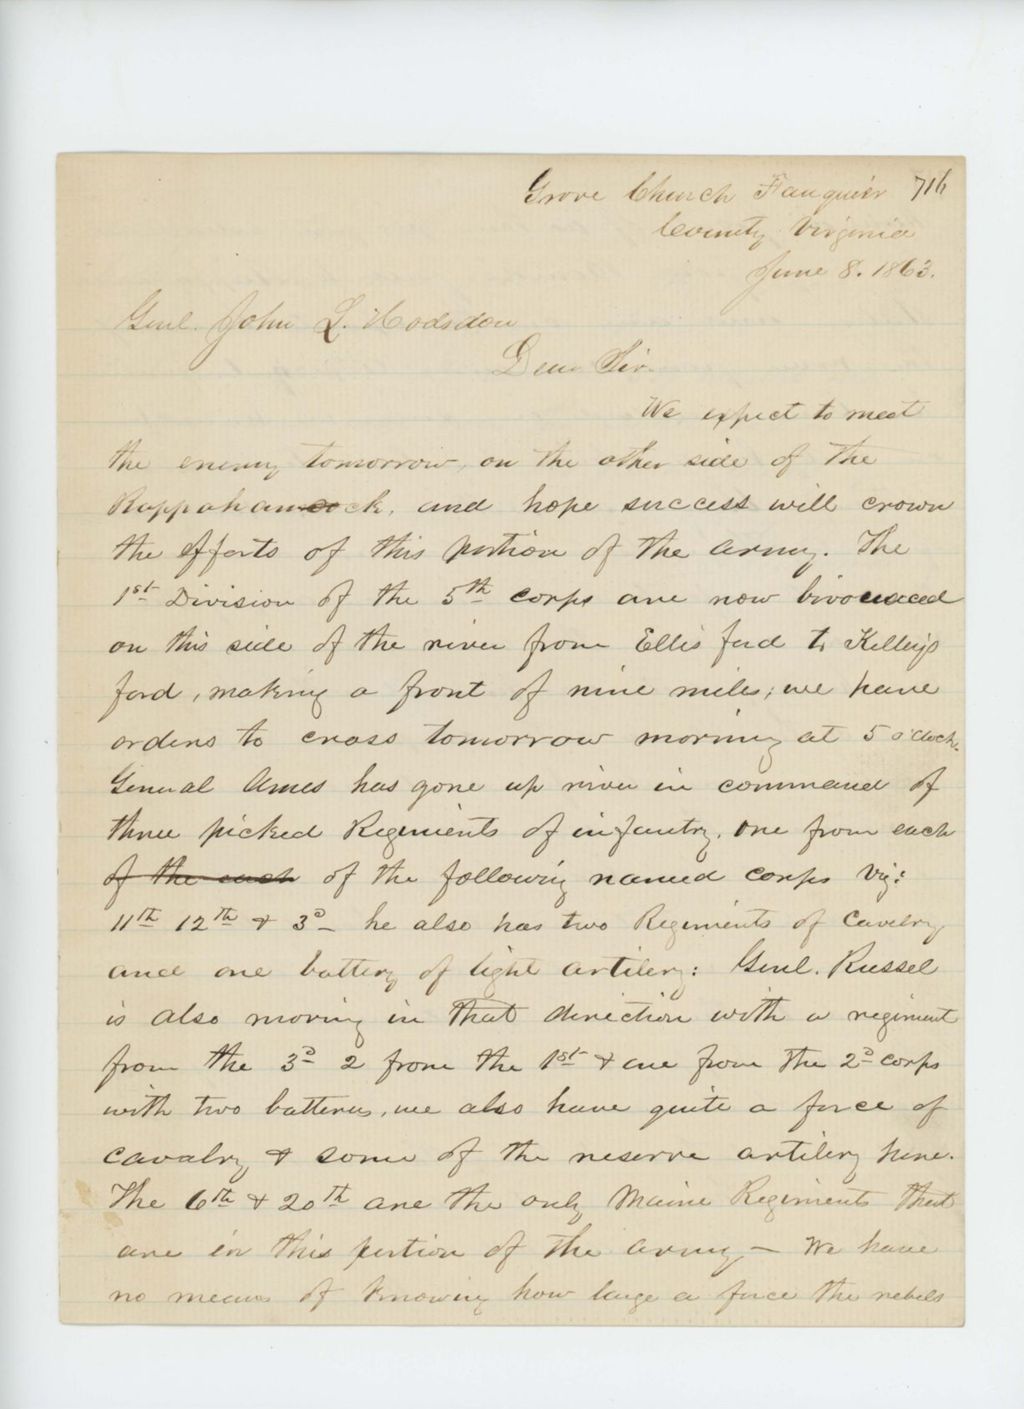 Grove Church Fauquier 716
County Virginia
June 8. 1863.
Genl. John L. Hodsdon
Dear Sir.
We expect to meet
the enemy tomorrow, on the other side of the
Rappahannock, and hope success will crown
the efforts of this portion of the army. The
1st Division of the 5th corps are now bivouaced
on this side of the river from Ellis ford to Kelleys
ford, making a front of nine miles; we have
orders to cross tomorrow morning at 5 o'clock.
General Ames has gone up river in command of
three picked Regiments of infantry, one from each
of the each of the following named corps viz:
11th 12th & 3d - he also has two Regiments of Cavelry
and one battery of light artilery: Genl. Russel
is also moving in that direction with a regiment
from the 3d 2 from the 1st & one from the 2d corps
with two batterys, we also have quite a force of
cavalry & some of the reserve artilery here.
The 6th & 20th are the only Maine Regiments that
are in this portion of the army - We have
no means of knowing how large a force the rebels